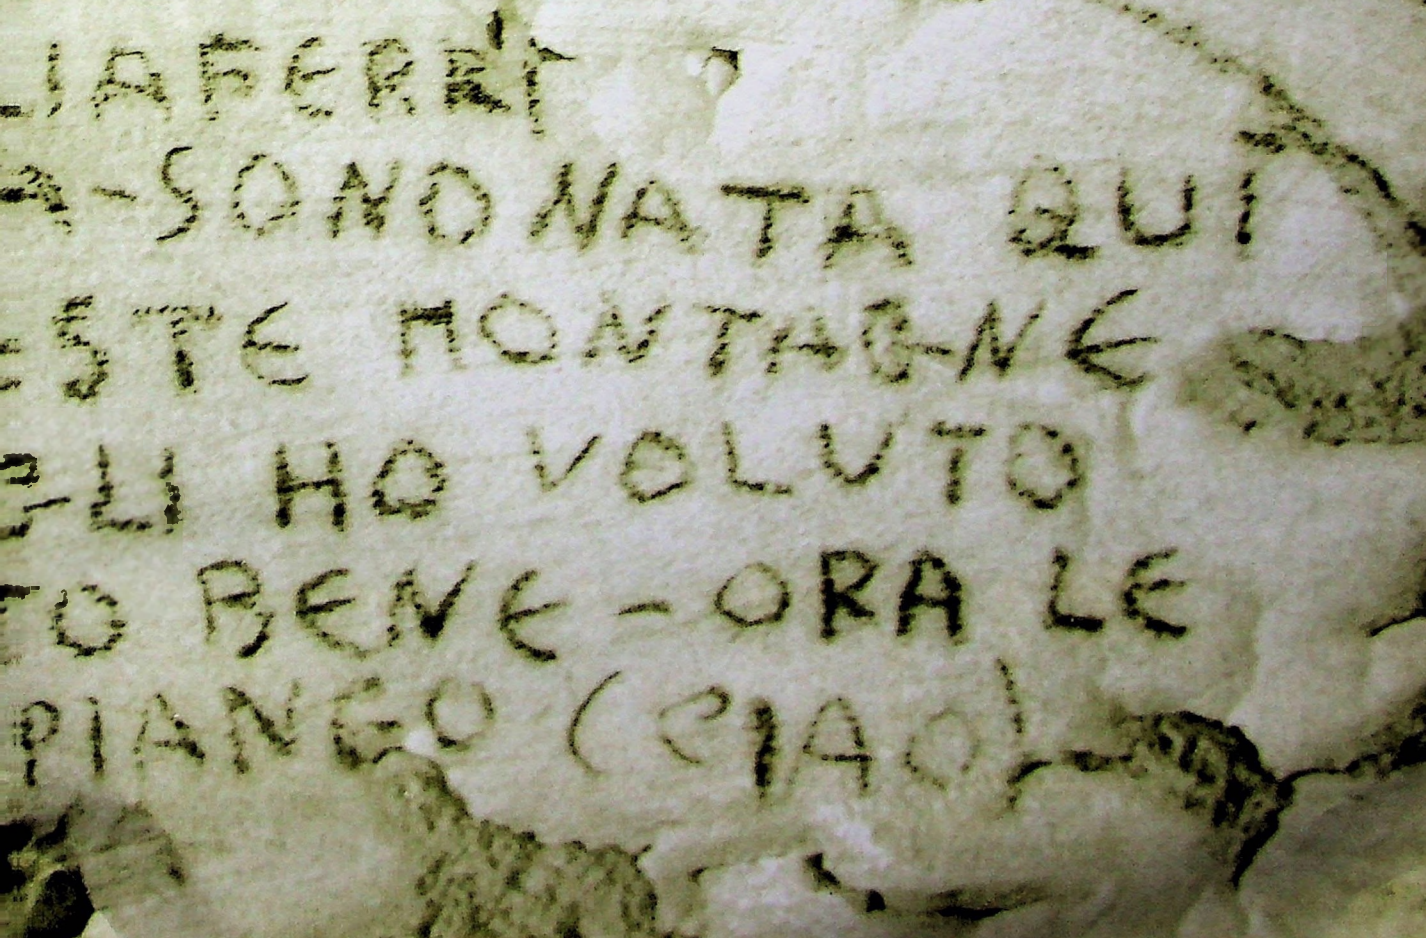 LIAFERRI
A-SONO NATA QUI
ESTE MONTAGNE
GLI HO VOLUTO
TO BENE-ORA LE
PIANGO (CIAO)